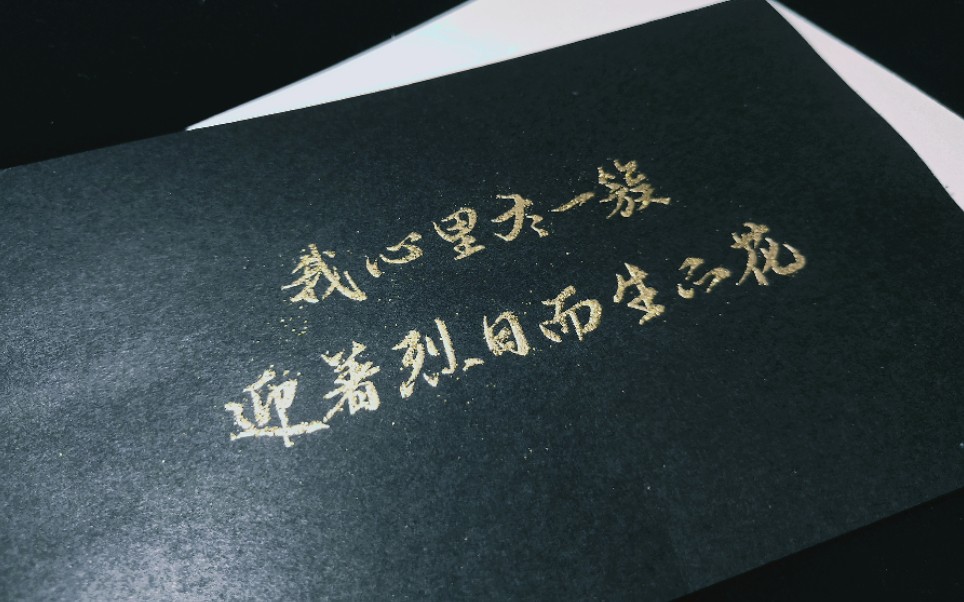 我心里有一簇
迎着烈日而生的花